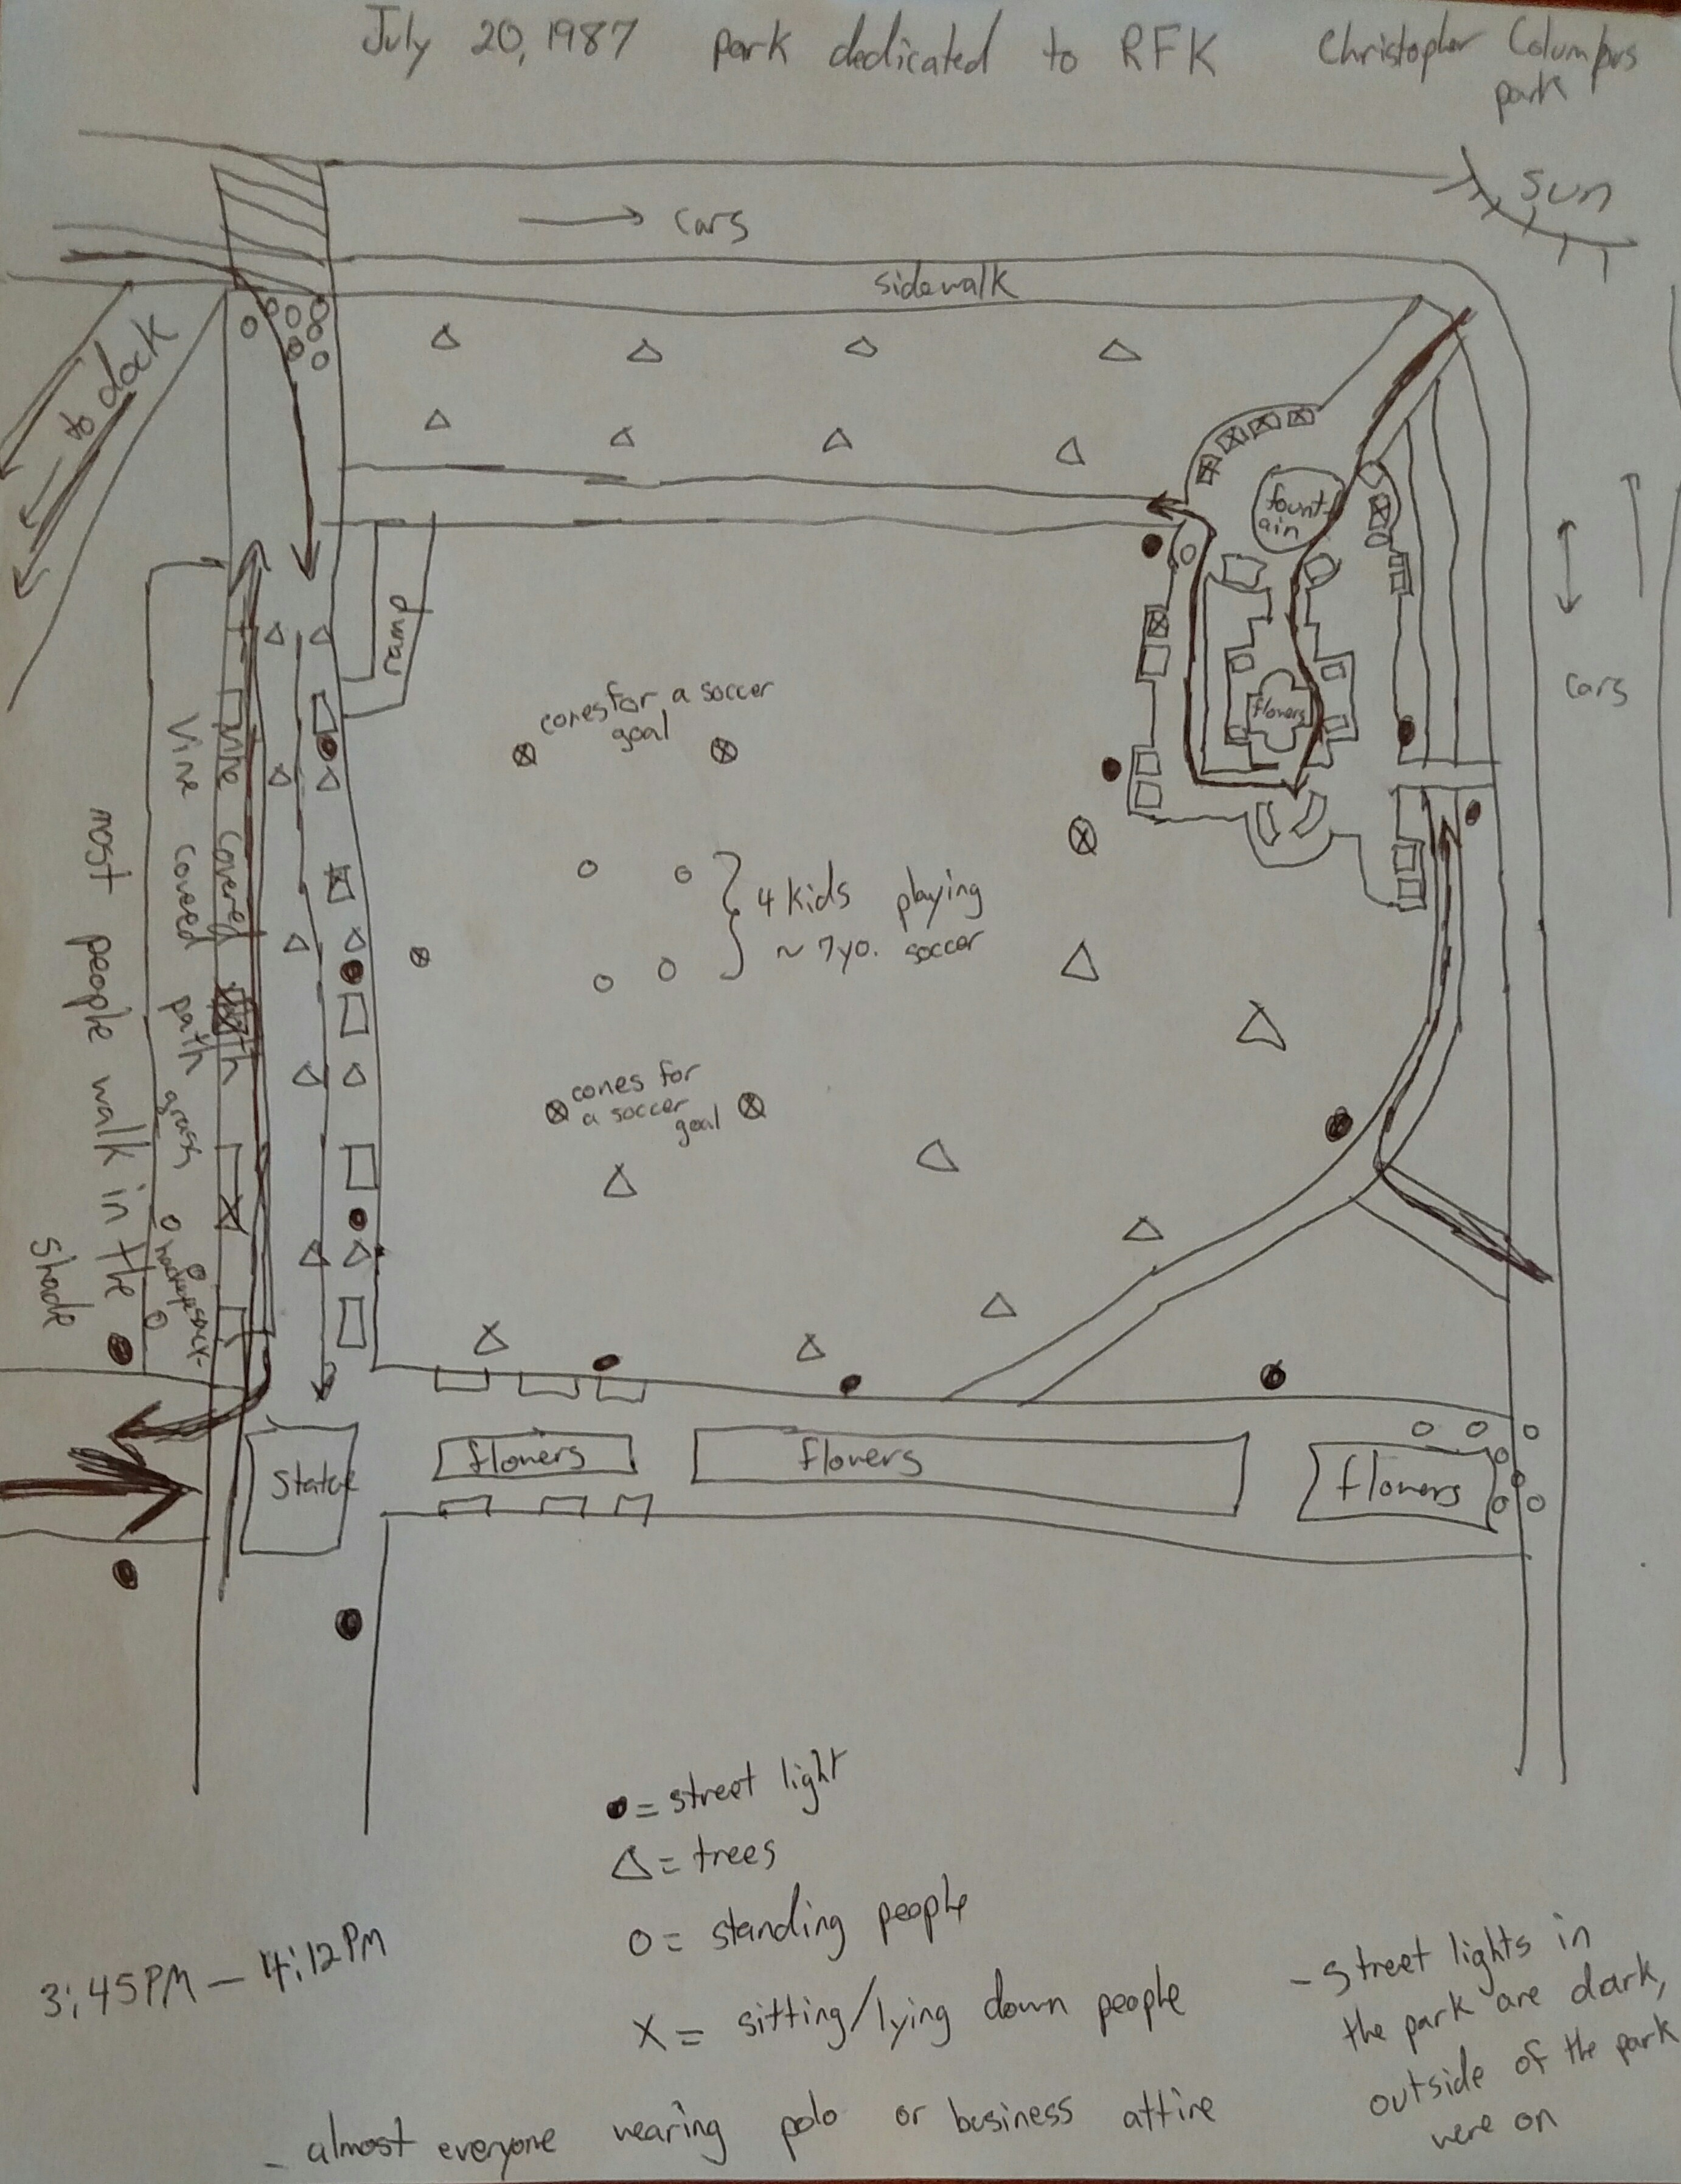 July 20, 1987 park dedicated to RFK Christopher Columbus
park
sun
→ cars
sidewalk
→ to dock
fount-
ain
ramp
flowers
cars
cones for a soccer
goal
Vine covered path
Vine covered path
grass
hackeysack
most people walk in the
shade
4 kids playing
~ 7yo. soccer
cones for
a soccer
goal
Statue
flowers
flowers
flowers
● = street light
△ = trees
O = standing people
X = sitting/lying down people
3:45PM – 4:12PM
- street lights in
the park are dark,
outside of the park
were on
- almost everyone wearing polo or business attire